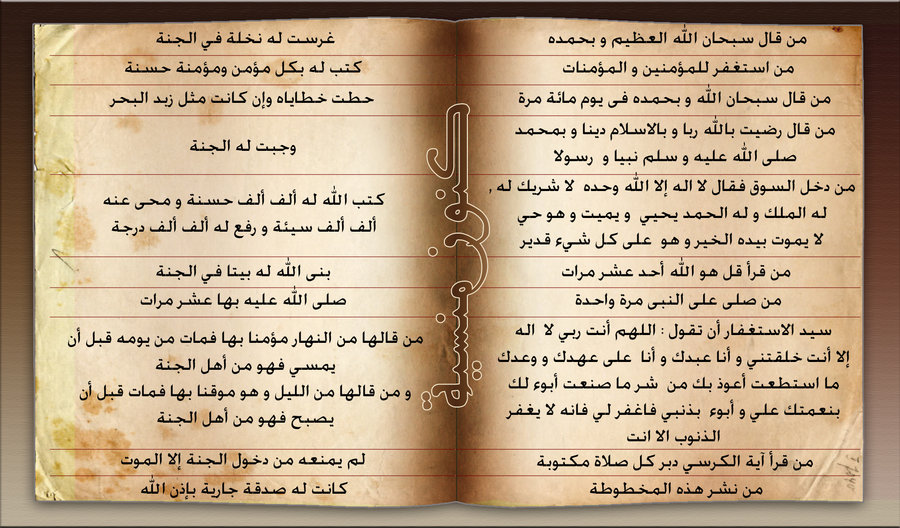 من قال سبحان الله العظيم و بحمده
غرست له نخلة في الجنة
من استغفر للمؤمنين و المؤمنات
كتب له بكل مؤمن ومؤمنة حسنة
من قال سبحان الله و بحمده فى يوم مائة مرة
حطت خطاياه وإن كانت مثل زبد البحر
من قال رضيت بالله ربا و بالاسلام دينا و بمحمد
صلى الله عليه و سلم نبيا و رسولا
وجبت له الجنة
من دخل السوق فقال لا اله إلا الله وحده لا شريك له ,
له الملك و له الحمد يحيي و يميت و هو حي
لا يموت بيده الخير و هو على كل شيء قدير
كتب الله له ألف ألف حسنة و محى عنه
ألف ألف سيئة و رفع له ألف ألف درجة
من قرأ قل هو الله أحد عشر مرات
بنى الله له بيتا في الجنة
من صلى على النبى مرة واحدة
صلى الله عليه بها عشر مرات
سيد الاستغفار أن تقول : اللهم أنت ربي لا اله
إلا أنت خلقتني و أنا عبدك و أنا على عهدك و وعدك
ما استطعت أعوذ بك من شر ما صنعت أبوء لك
بنعمتك علي و أبوء بذنبي فاغفر لي فانه لا يغفر
الذنوب الا انت
من قالها من النهار مؤمنا بها فمات من يومه قبل أن
يمسي فهو من أهل الجنة
و من قالها من الليل و هو موقنا بها فمات قبل أن
يصبح فهو من أهل الجنة
من قرأ آية الكرسي دبر كل صلاة مكتوبة
لم يمنعه من دخول الجنة إلا الموت
من نشر هذه المخطوطة
كانت له صدقة جارية بإذن الله
كنوز منسية